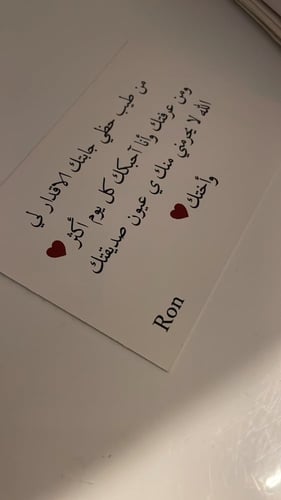 من طيب حظي جابتك الاقدار لي
ومن عرفتك وأنا أحبكك كل يوم أكثر ❤
الله لا يحرمني منك ي عيون صديقتك
وأختك ❤
Ron